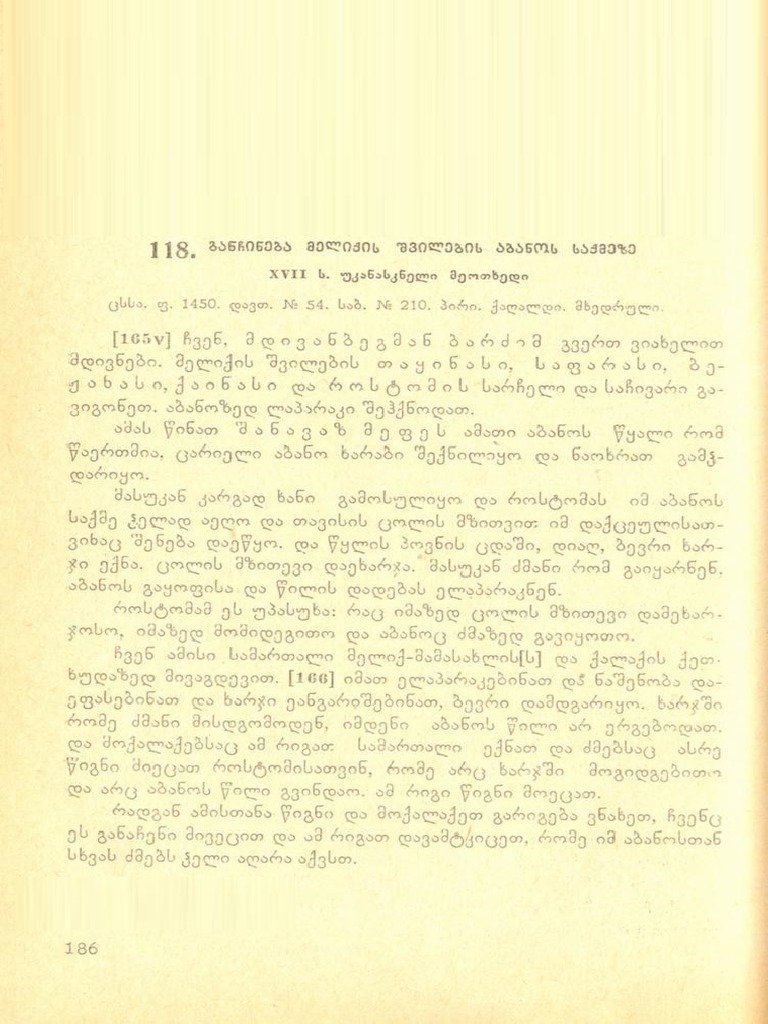 118. განჩინება მელიქის შვილების აბანოს საქმეზე
XVII ს. უკანასკნელი მეოთხედი
ცსსა. ფ. 1450. დავთ. № 54. საბ. № 210. პირი. ქაღალდი. მხედრული.
[165v] ჩვენ, მდივანბეგმან ბარძიმ გვერთ ვიახელით
მდივნები. მელიქის შვილების თაყინასი, საფარასი, ბე-
ჟახასი, ქაინასი და როსტომის სარჩელი და საჩივარი გა-
ვიგონეთ. აბანოზედ ლაპარაკი შეჰქნოდათ.
ამას წინათ შანავაზ მეფეს ამათი აბანოს წყალი რომ
წაერთმია, ცარიელი აბანო ხარაბი შექნილიყო და ნაოხრათ გამჴ-
დარიყო.
მასუკან კარგად ხანი გამოსულიყო და როსტომას იმ აბანოს
საქმე ჴელად აეღო და თავისის ცოლის მზითვით იმ დაქცეულისათ-
ვიხაც შენება დაეწყო. და წყლის პოვნის ცდაში, დიაღ, ბევრი ხარ-
ჯი ექნა. ცოლის მზითევი დაეხარჯა. მასუკან ძმანი რომ გაიყარნენ,
აბანოს გაყოფისა და წილის დადებას ელაპარაკნენ.
როსტომამ ეს უპასუხა: რაც იმაზედ ცოლის მზითევი დამეხარ-
ჯოსო, იმაზედ მომიდეგითო და აბანოც ძმაზედ გავიყოთო.
ჩვენ ამისი სამართალი მელიქ-მამასახლის[ს] და ქალაქის ქეთ-
ხუდაზედ მივაგდევით. [166] იმათ ელაპარაკებინათ და ნაშენობა და-
ეფასებინათ და ხარჯი ეანგარიშებინათ, ბევრი დამდგარიყო. ხარჯში
რომე ძმანი მისდგომოდენ, იმდენი აბანოს წილი არ ერგებოდათ.
და მოქალაქებსაც ამ რიგათ სამართალი ექნათ და ძმებსაც ასრე
წიგნი მიეცათ როსტომისათვინ, რომე არც ხარჯში მოგიდგებითო
და არც აბანოს წილი გვინდაო. ამ რიგი წიგნი მოეცათ.
რადგან ამისთანა წიგნი და მოქალაქეთ გარიგება ვნახეთ, ჩვენც
ეს განაჩენი მივეცით და ამ რიგათ დავამტკიცეთ, რომე იმ აბანოსთან
სხვას ძმებს ჴელი აღარა აქვსთ.
186